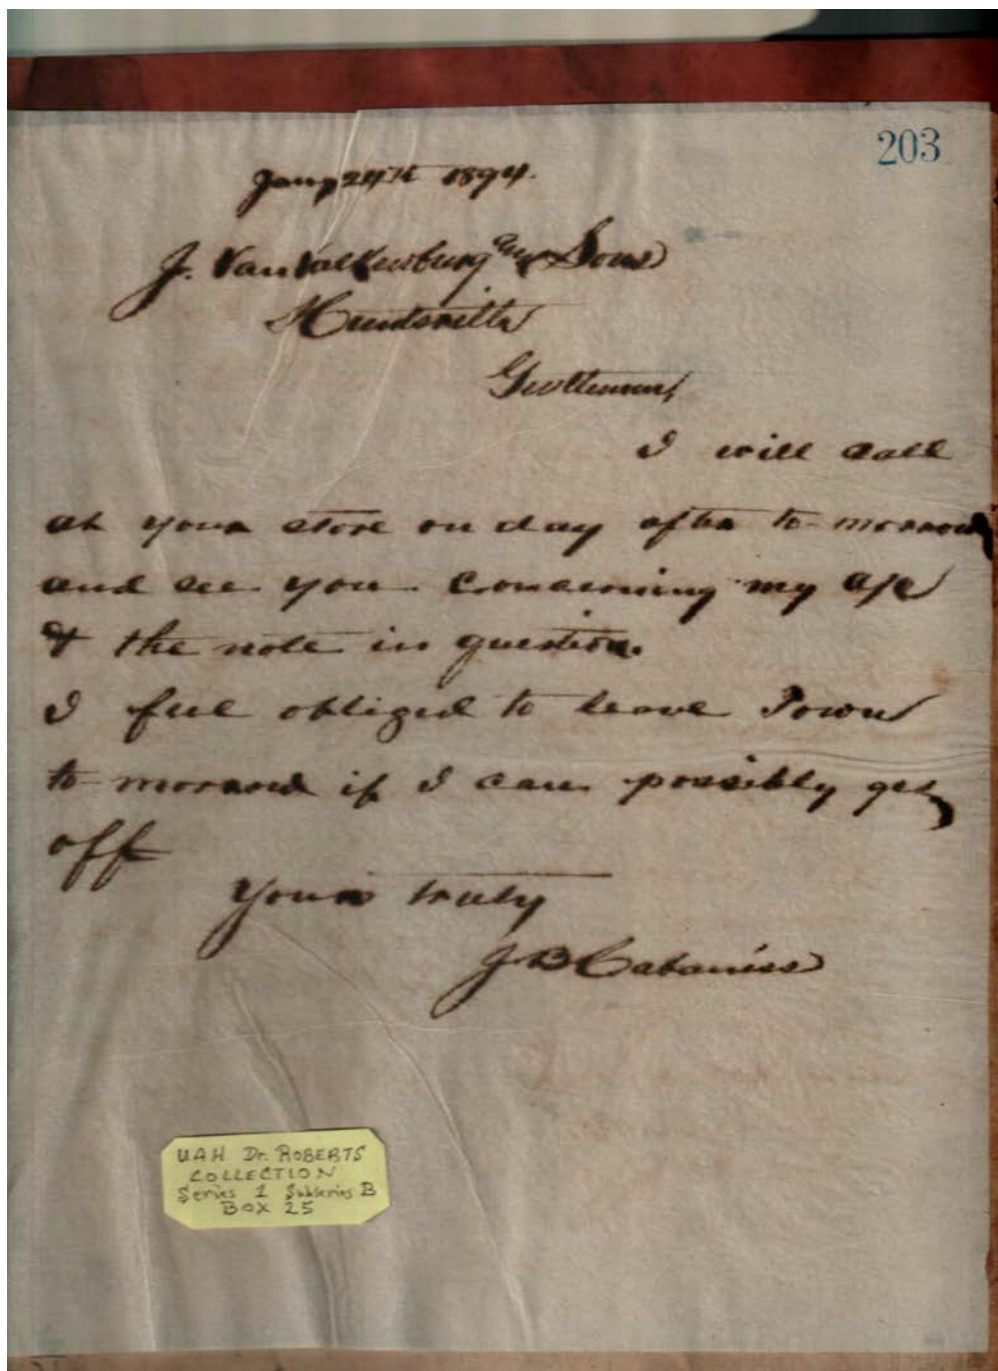 203
Jany 24th 1894.
J. VanValkenburg & Sons
Huntsville
Gentlemen,
I will call
at your store on day after to-morrow
and see you concerning my a/c
& the note in question.
I feel obliged to leave Town
to-morrow if I can possibly get
off
Yours truly
J B Cabaniss
UAH Dr. ROBERTS
COLLECTION
Series 1 Subseries B
BOX 25